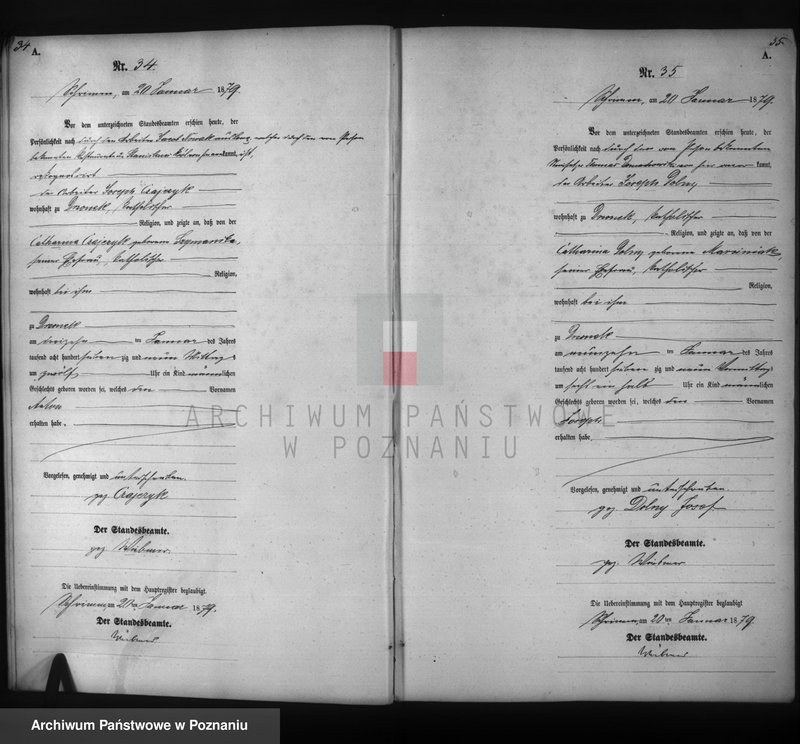 34
A.
Nr. 34.
Schrimm, am 20 Januar 1879.
Vor dem unterzeichneten Standesbeamten erschien heute, der
Persönlichkeit nach durch den Arbeiter
bekannten kannt,
der Arbeiter Joseph Czajczyk
wohnhaft zu Dronek, katholischer
Religion, und zeigte an, daß von der
Catharina Czajczyk geborenen Szymanska,
seiner Ehefrau, katholischer
Religion,
wohnhaft bei ihm
zu Dronek
am dreizehn ten Januar des Jahres
tausend acht hundert sieben zig und neun Mittag
um zwölf Uhr ein Kind männlichen
Geschlechts geboren worden sei, welches den Vornamen
Anton
erhalten habe.
Vorgelesen, genehmigt und unterschrieben.
gez Czajczyk
Der Standesbeamte.
gez.
Die Uebereinstimmung mit dem Hauptregister beglaubigt
Schrimm, am 20ten Januar 1879.
Der Standesbeamte.
35.
A.
Nr. 35
Schrimm, am 20 Januar 1879.
Vor dem unterzeichneten Standesbeamten erschien heute, der
Persönlichkeit nach durch den von Person bekannten
kannt,
der Arbeiter Joseph Dolny
wohnhaft zu Dronek, katholischer
Religion, und zeigte an, daß von der
Catharina Dolny geborene Marciniak
seiner Ehefrau, katholischer
Religion,
wohnhaft bei ihm
zu Dronek
am neunzehn ten Januar des Jahres
tausend acht hundert sieben zig und neun Vormittag
um Uhr ein Kind männlichen
Geschlechts geboren worden sei, welches den Vornamen
Joseph
erhalten habe.
Vorgelesen, genehmigt und unterschrieben.
gez. Dolny Josef
Der Standesbeamte.
gez.
Die Uebereinstimmung mit dem Hauptregister beglaubigt
Schrimm, am 20ten Januar 1879
Der Standesbeamte.
ARCHIWUM PAŃSTWOWE
W POZNANIU
Archiwum Państwowe w Poznaniu